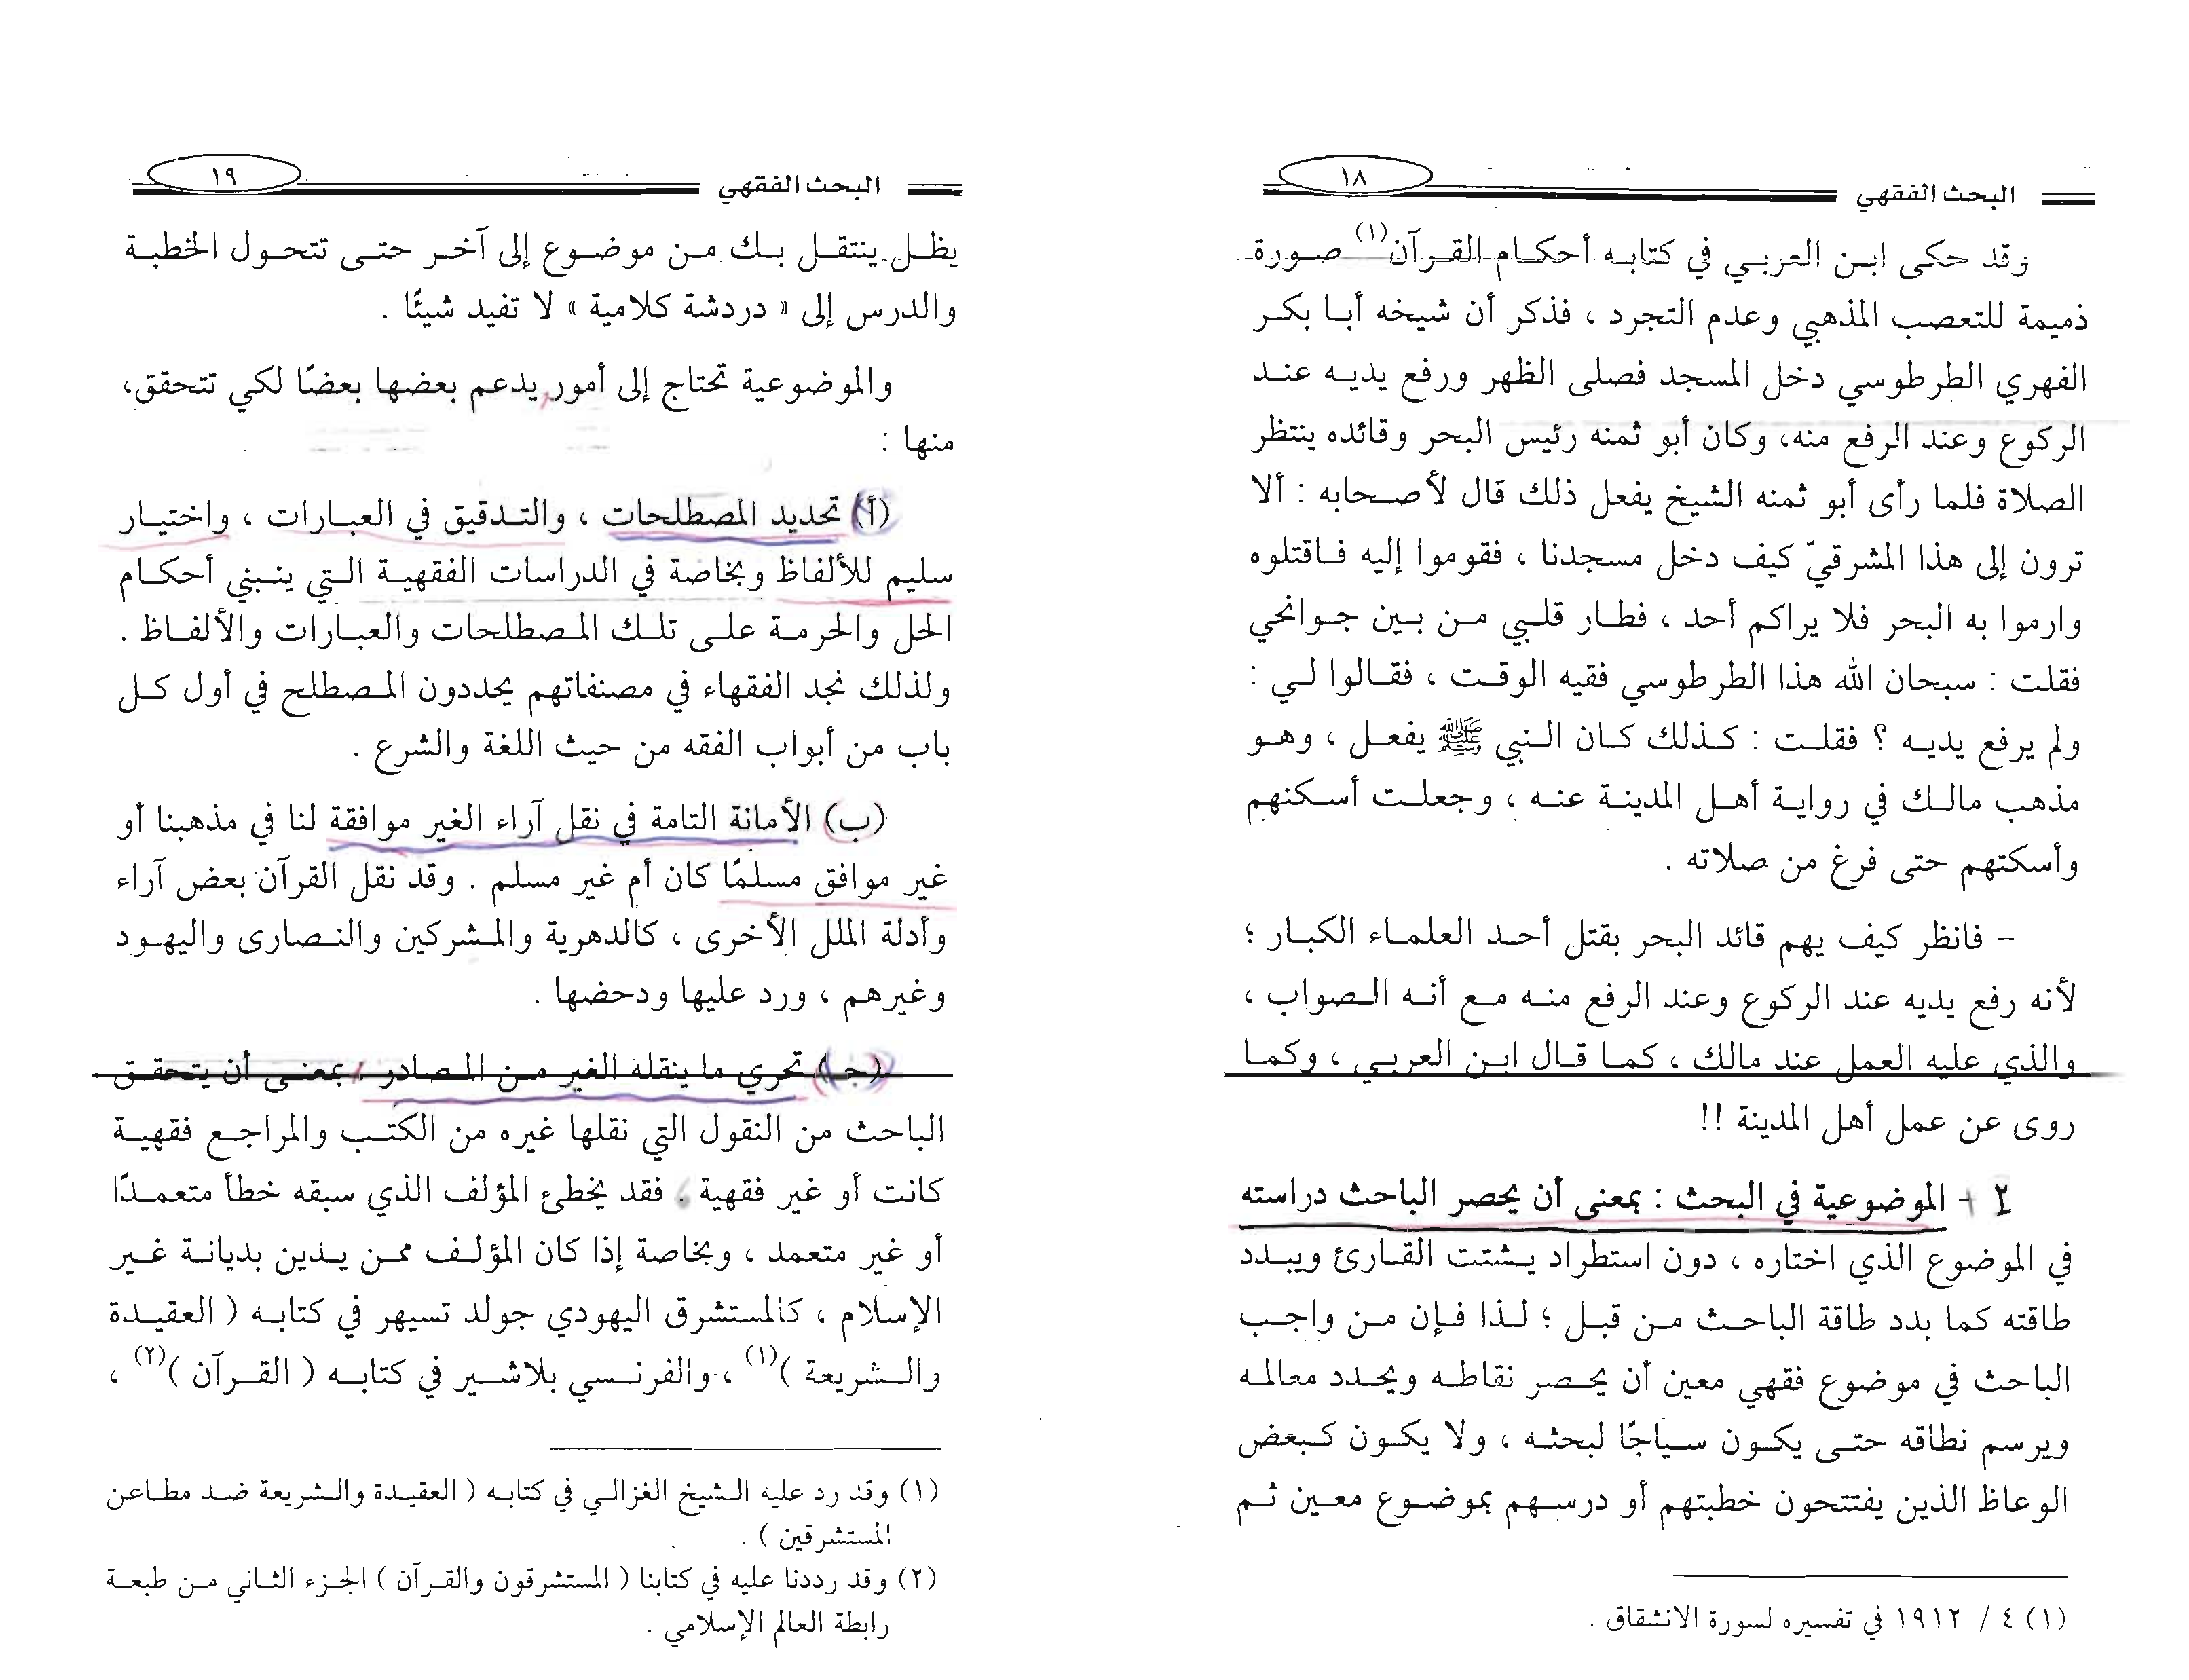 البحث الفقهي ١٨
وقد حكى ابن العربي في كتابه أحكام القرآن(١) صورة
ذميمة للتعصب المذهبي وعدم التجرد ، فذكر أن شيخه أبا بكر
الفهري الطرطوسي دخل المسجد فصلى الظهر ورفع يديه عند
الركوع وعند الرفع منه، وكان أبو ثمنه رئيس البحر وقائده ينتظر
الصلاة فلما رأى أبو ثمنه الشيخ يفعل ذلك قال لأصحابه : ألا
ترون إلى هذا المشرقيّ كيف دخل مسجدنا ، فقوموا إليه فاقتلوه
وارموا به البحر فلا يراكم أحد ، فطار قلبي من بين جوانحي
فقلت : سبحان الله هذا الطرطوسي فقيه الوقت ، فقالوا لي :
ولم يرفع يديه ؟ فقلت : كذلك كان النبي ﷺ يفعل ، وهو
مذهب مالك في رواية أهل المدينة عنه ، وجعلت أسكنهم
وأسكتهم حتى فرغ من صلاته .
- فانظر كيف يهم قائد البحر بقتل أحد العلماء الكبار ؛
لأنه رفع يديه عند الركوع وعند الرفع منه مع أنه الصواب ،
والذي عليه العمل عند مالك ، كما قال ابن العربي ، وكما
روى عن عمل أهل المدينة !!
٢ - الموضوعية في البحث : بمعنى أن يحصر الباحث دراسته
في الموضوع الذي اختاره ، دون استطراد يشتت القارئ ويبدد
طاقته كما بدد طاقة الباحث من قبل ؛ لذا فإن من واجب
الباحث في موضوع فقهي معين أن يحصر نقاطه ويحدد معالمه
ويرسم نطاقه حتى يكون سياجًا لبحثه ، ولا يكون كبعض
الوعاظ الذين يفتتحون خطبتهم أو درسهم بموضوع معين ثم
(١) ٤ / ١٩١٢ في تفسيره لسورة الانشقاق .
البحث الفقهي ١٩
يظل ينتقل بك من موضوع إلى آخر حتى تتحول الخطبة
والدرس إلى « دردشة كلامية » لا تفيد شيئًا .
والموضوعية تحتاج إلى أمور يدعم بعضها بعضًا لكي تتحقق،
منها :
(أ) تحديد المصطلحات ، والتدقيق في العبارات ، واختيار
سليم للألفاظ وبخاصة في الدراسات الفقهية التي ينبني أحكام
الحل والحرمة على تلك المصطلحات والعبارات والألفاظ .
ولذلك نجد الفقهاء في مصنفاتهم يحددون المصطلح في أول كل
باب من أبواب الفقه من حيث اللغة والشرع .
(ب) الأمانة التامة في نقل آراء الغير موافقة لنا في مذهبنا أو
غير موافق مسلمًا كان أم غير مسلم . وقد نقل القرآن بعض آراء
وأدلة الملل الأخرى ، كالدهرية والمشركين والنصارى واليهود
وغيرهم ، ورد عليها ودحضها .
(جـ) تحري ما ينقله الغير من المصادر ، بمعنى أن يتحقق
الباحث من النقول التي نقلها غيره من الكتب والمراجع فقهية
كانت أو غير فقهية . فقد يخطئ المؤلف الذي سبقه خطأ متعمدًا
أو غير متعمد ، وبخاصة إذا كان المؤلف ممن يدين بديانة غير
الإسلام ، كالمستشرق اليهودي جولد تسيهر في كتابه ( العقيدة
والشريعة )(١) ، والفرنسي بلاشير في كتابه ( القرآن )(٢) ،
(١) وقد رد عليه الشيخ الغزالي في كتابه ( العقيدة والشريعة ضد مطاعن
المستشرقين ) .
(٢) وقد رددنا عليه في كتابنا ( المستشرقون والقرآن ) الجزء الثاني من طبعة
رابطة العالم الإسلامي .